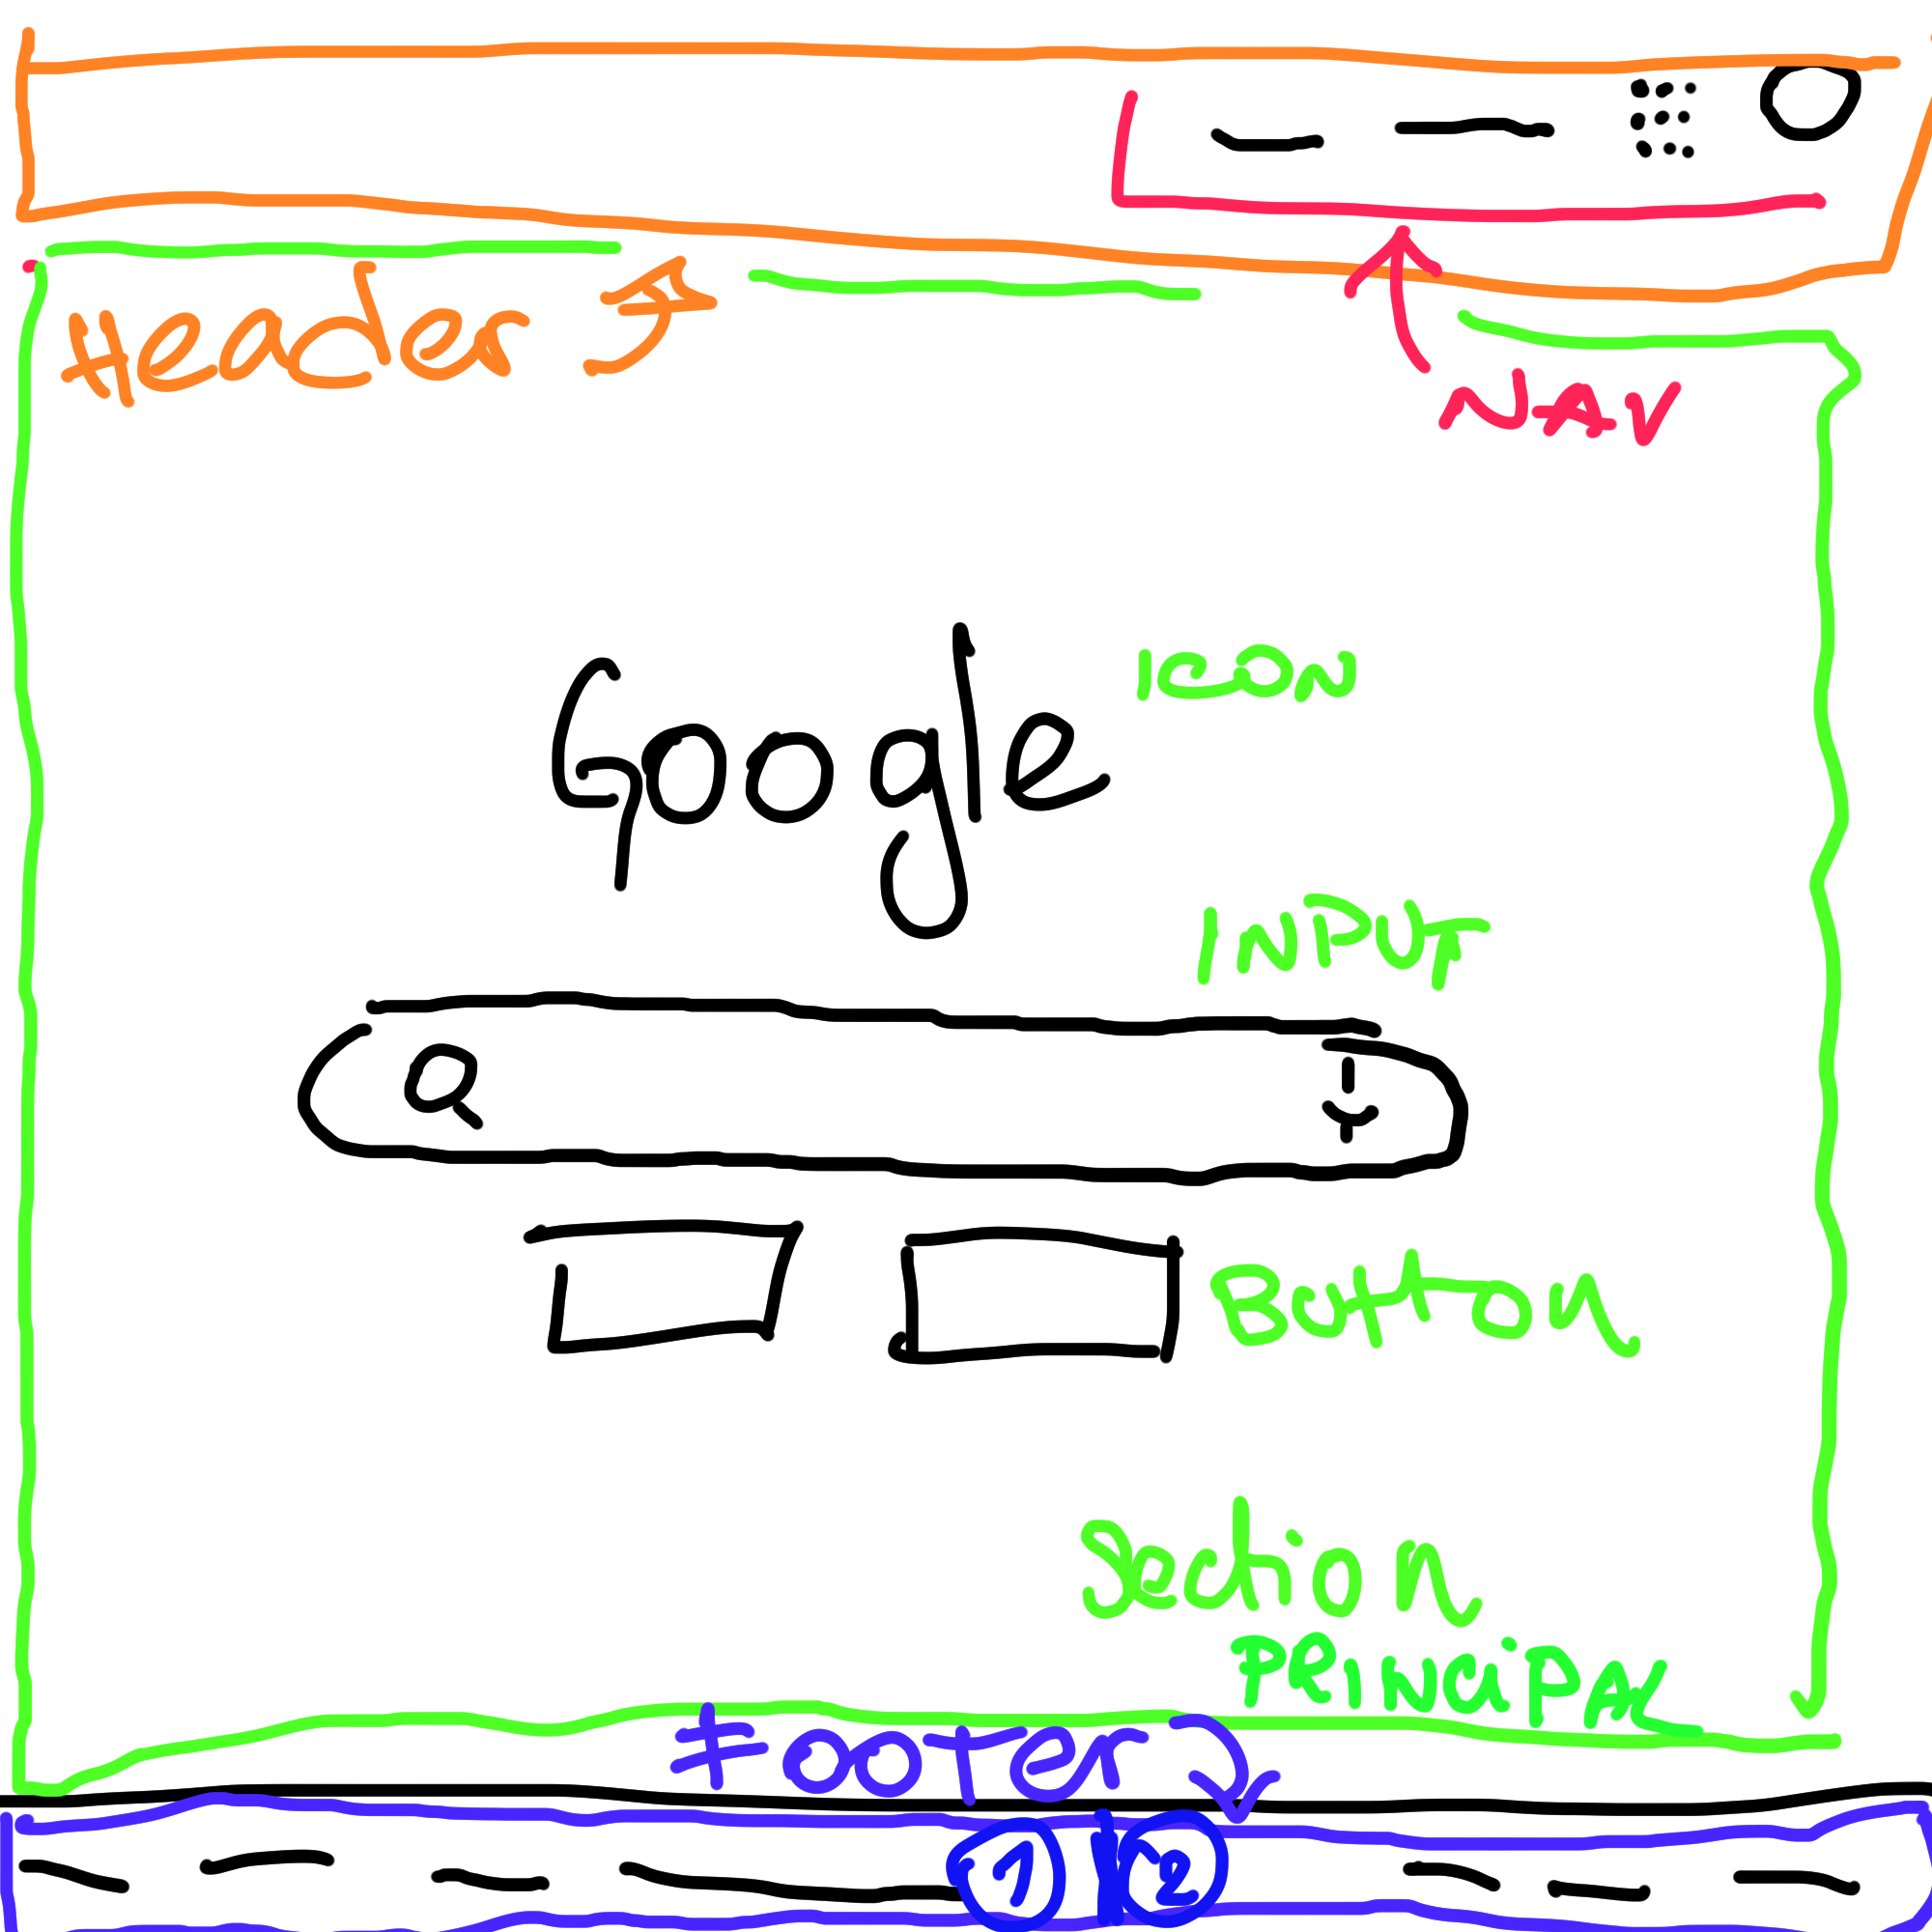 Header
NAV
Google
ICON
INPUT
Button
Section
PRINCIPAL
Footer
1 2